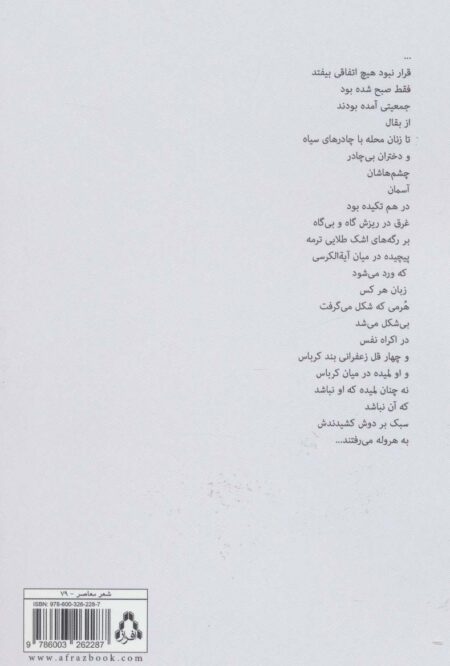 ...
قرار نبود هیچ اتفاقی بیفتد
فقط صبح شده بود
جمعیتی آمده بودند
از بقال
تا زنان محله با چادرهای سیاه
و دختران بی‌چادر
چشم‌هاشان
آسمان
در هم تکیده بود
غرق در ریزش گاه و بی‌گاه
بر رگه‌های اشک طلایی ترمه
پیچیده در میان آیةالکرسی
که ورد می‌شود
زبان هر کس
هُرمی که شکل می‌گرفت
بی‌شکل می‌شد
در اکراه نفس
و چهار قل زعفرانی بند کرباس
و او لمیده در میان کرباس
نه چنان لمیده که او نباشد
که آن نباشد
سبک بر دوش کشیدندش
به هروله می‌رفتند...
شعر معاصر – ۷۹
ISBN: 978-600-326-228-7
9 786003 262287
افراز
www.afrazbook.com